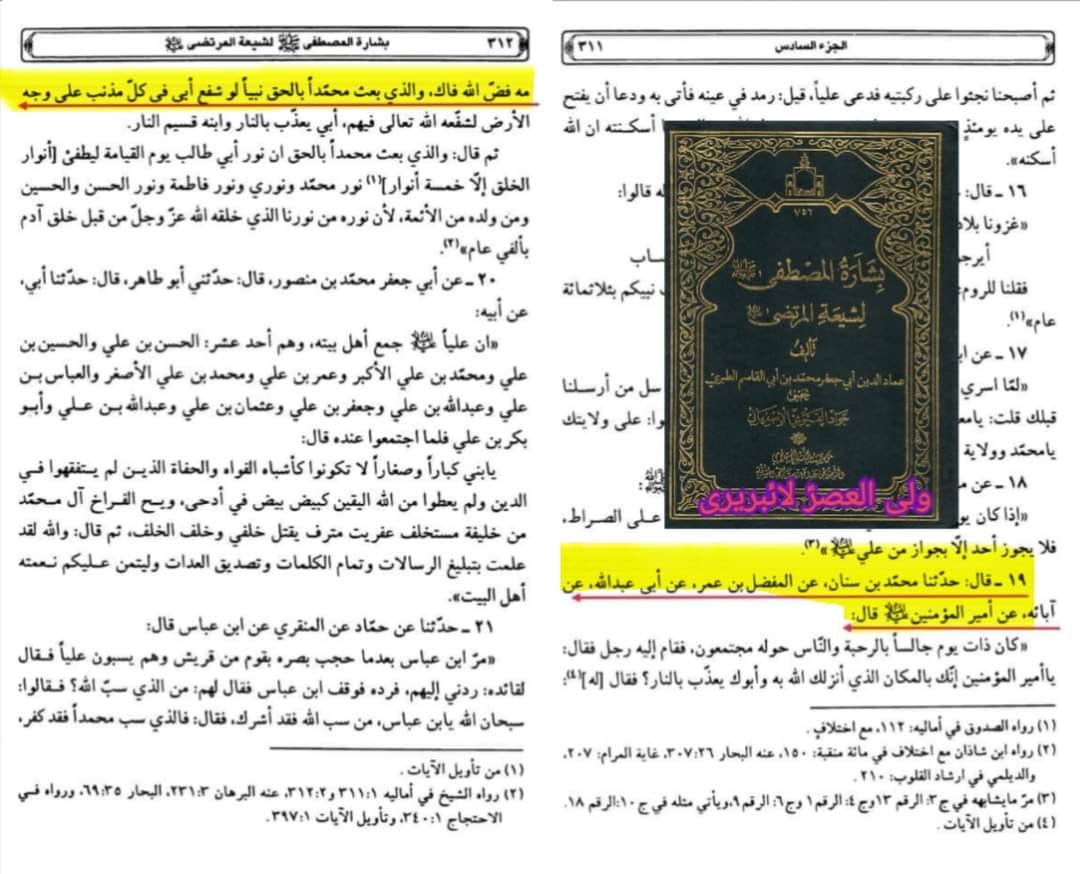 الجزء السادس
٣١١
ثم أصبحنا نجثوا على ركبتيه فدعى علياً، قيل: رمد في عينه فأتى به ودعا أن يفتح
على يده يومئذٍ
أسكنته ان الله
أسكنه».
١٦ ـ قال:
له قالوا:
«غزونا بلاد
أيرجو
ساب
فقلنا للروم:
نبيكم بثلاثمائة
عام»(١).
١٧ ـ عن
«لمّا اسري
سل من أرسلنا
قبلك قلت: يامع
وا: على ولايتك
يامحمّد وولاية
١٨ ـ عن
«إذا كان يو
على الصراط،
فلا يجوز أحد إلّا بجواز من علي عليه السلام»(٣).
١٩ ـ قال: حدّثنا محمّد بن سنان، عن المفضل بن عمر، عن أبى عبدالله، عن
آبائه، عن أمير المؤمنين عليه السلام قال:
«كان ذات يوم جالساً بالرحبة والنّاس حوله مجتمعون، فقام إليه رجل فقال:
ياأمير المؤمنين إنّك بالمكان الذي أنزلك الله به وأبوك يعذّب بالنار؟ فقال [له](٤):
(١) رواه الصدوق في أماليه: ١١٢، مع اختلافٍ.
(٢) رواه ابن شاذان مع اختلاف في مائة منقبة: ١٥٠، عنه البحار ٣٠٧:٢٦، غاية المرام: ٢٠٧،
والديلمي في ارشاد القلوب: ٢١٠.
(٣) مرّ مايشابهه في ج ٣: الرقم ١٣ وج ٤: الرقم ١ وج ٦: الرقم ٩، ويأتي مثله في ج ١٠: الرقم ١٨.
(٤) من تأويل الآيات.
٧٥٦
بشارة المصطفى
لشيعة المرتضى
تأليف
عماد الدين أبي جعفر محمد بن أبي القاسم الطبري
تحقيق
جواد القيومي الاصفهاني
ولى العصرؑ لائبریری
٣١٢
بشارة المصطفى صلى الله عليه وآله لشيعة المرتضى عليه السلام
مه فضّ الله فاك، والذي بعث محمّداً بالحق نبياً لو شفع أبى فى كلّ مذنب على وجه
الأرض لشفّعه الله تعالى فيهم، أبي يعذّب بالنار وابنه قسيم النار.
ثم قال: والذي بعث محمداً بالحق ان نور أبي طالب يوم القيامة ليطفئ [أنوار
الخلق إلّا خمسة أنوار](١) نور محمّد ونوري ونور فاطمة ونور الحسن والحسين
ومن ولده من الأئمة، لأن نوره من نورنا الذي خلقه الله عزّ وجلّ من قبل خلق آدم
بألفي عام»(٢).
٢٠ ـ عن أبي جعفر محمّد بن منصور، قال: حدّثني أبو طاهر، قال: حدّثنا أبي،
عن أبيه:
«ان علياً عليه السلام جمع أهل بيته، وهم أحد عشر: الحسن بن علي والحسين بن
علي ومحمّد بن علي الأكبر وعمر بن علي ومحمد بن علي الأصغر والعباس بن
علي وعبدالله بن علي وجعفر بن علي وعثمان بن علي وعبدالله بن علي وأبو
بكر بن علي فلما اجتمعوا عنده قال:
يابني كباراً وصغاراً لا تكونوا كأشباه الفواه والحفاة الذين لم يتفقهوا في
الدين ولم يعطوا من الله اليقين كبيض بيض في أدحى، ويح الفراخ آل محمّد
من خليفة مستخلف عفريت مترف يقتل خلفي وخلف الخلف، ثم قال: والله لقد
علمت بتبليغ الرسالات وتمام الكلمات وتصديق العدات وليتمن عليكم نعمته
أهل البيت».
٢١ ـ حدّثنا عن حمّاد عن المنقري عن ابن عباس قال:
«مرّ ابن عباس بعدما حجب بصره بقوم من قريش وهم يسبون علياً فقال
لقائده: ردني إليهم، فرده فوقف ابن عباس فقال لهم: من الذي سبّ الله؟ فقالوا:
سبحان الله يابن عباس، من سب الله فقد أشرك، فقال: فالذي سب محمداً فقد كفر،
(١) من تأويل الآيات.
(٢) رواه الشيخ في أماليه ٣١١:١ و٣١٢:٢، عنه البرهان ٢٣١:٣، البحار ٦٩:٣٥، ورواه في
الاحتجاج ٣٤٠:١، وتأويل الآيات ٣٩٧:١.